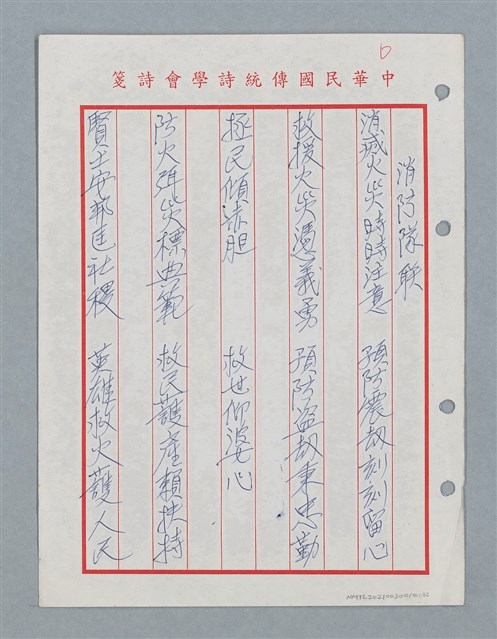 中華民國傳統詩學會詩箋
6
消防隊联
消滅火災時時注意　預防震刧刻刻留心
救援火災憑義勇　預防盗刧秉忠勤
拯民傾赤胆　救世仰婆心
防火弭災標典範　救民護產賴扶持
賢士安邦匡社稷　英雄救火護人民